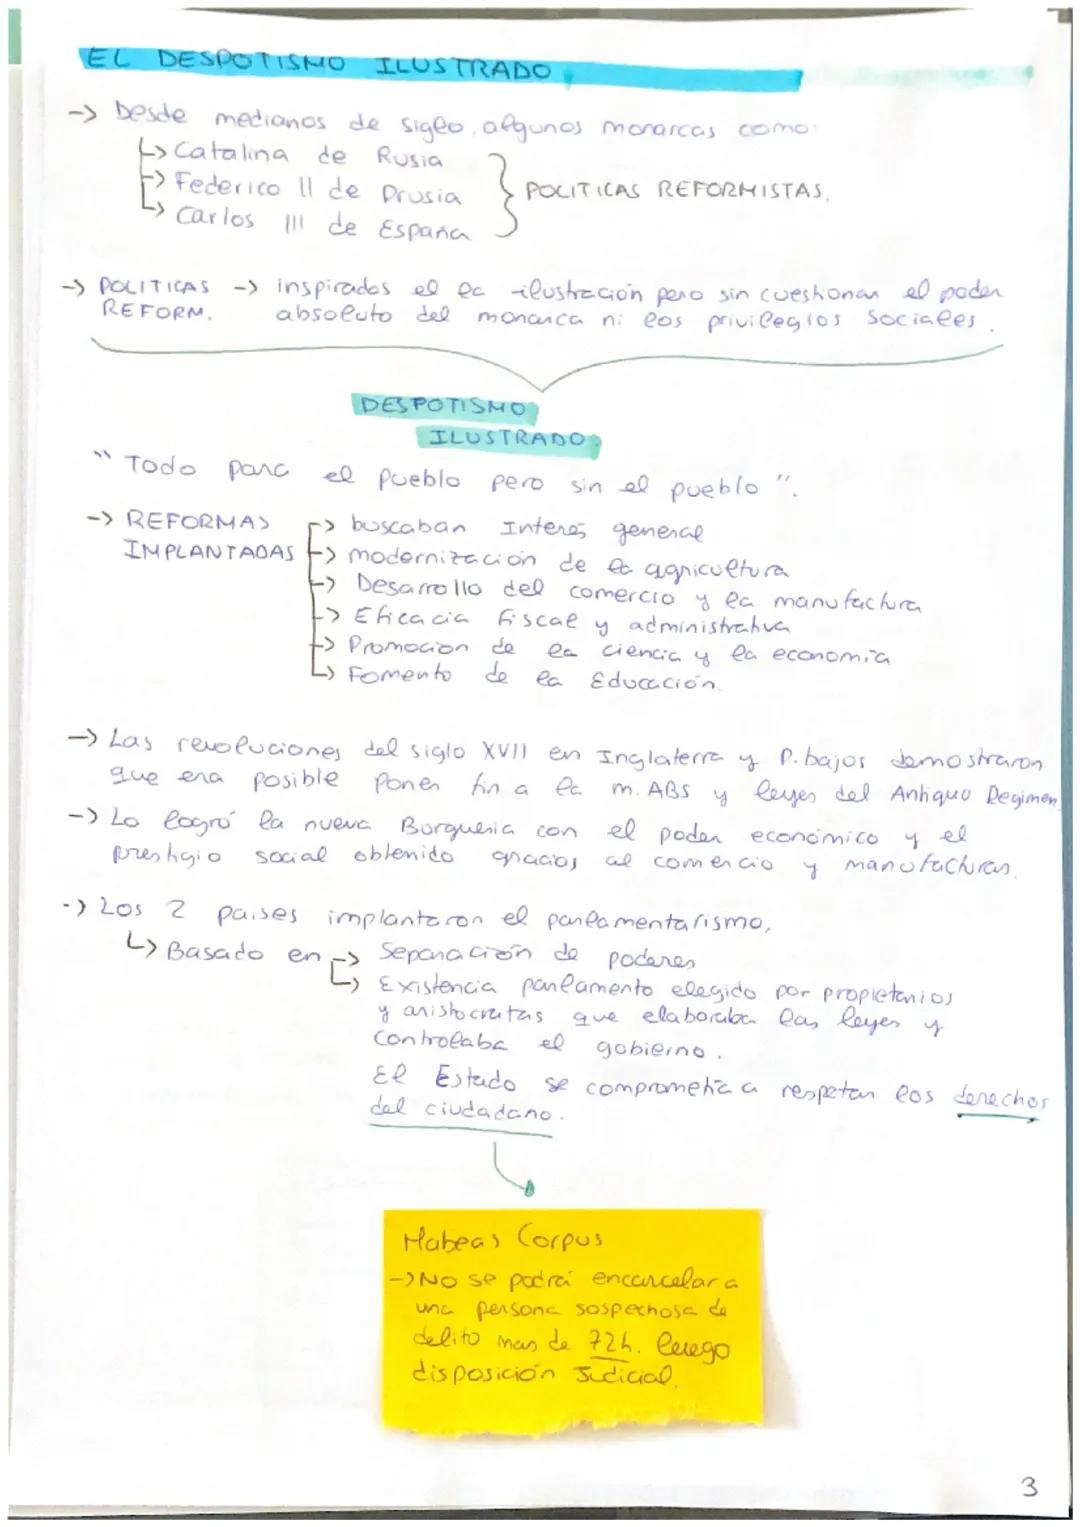 EL DESPOTISMO ILUSTRADO
-> Desde medianos de siglo, algunos monarcas como:
↳> Catalina de Rusia
-> Federico II de Prusia
↳> Carlos III de España
POLITICAS REFORMISTAS.
-> POLITICAS -> inspirados el la ilustración pero sin cuestionar el poder
REFORM. absoluto del monarca ni los privilegios sociales.
DESPOTISMO
ILUSTRADO
"Todo para el pueblo pero sin el pueblo".
-> REFORMAS -> buscaban Interes general
IMPLANTADAS -> modernización de la agricultura
-> Desarrollo del comercio y la manufactura
-> Eficacia fiscal y administrativa
-> Promocion de la ciencia y la economía
-> Fomento de la Educación.
-> Las revoluciones del siglo XVII en Inglaterra y P. bajos demostraron
que era posible poner fin a la m. ABS y leyes del Antiguo Regimen
-> Lo logró la nueva Burguesia con el poder económico y el
prestigio social obtenido gracias al comercio y manufacturas.
-> Los 2 paises implantaron el parlamentarismo,
↳> Basado en -> Separación de poderes
-> Existencia parlamento elegido por propietarios
y aristocratas que elaboraba las leyes y
controlaba el gobierno.
El Estado se comprometía a respetar los derechos
del ciudadano.
Habeas Corpus
-> No se podrá encarcelar a
una persona sospechosa de
delito mas de 72h. luego
disposición Judicial.
3